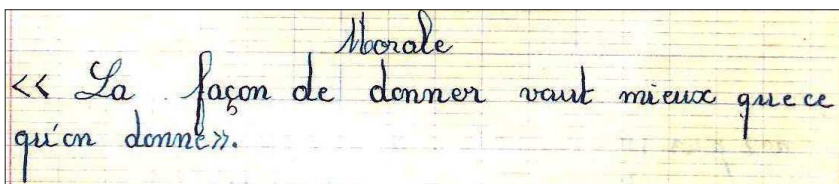 Morale
<< La façon de donner vaut mieux que ce
qu'on donne>>.